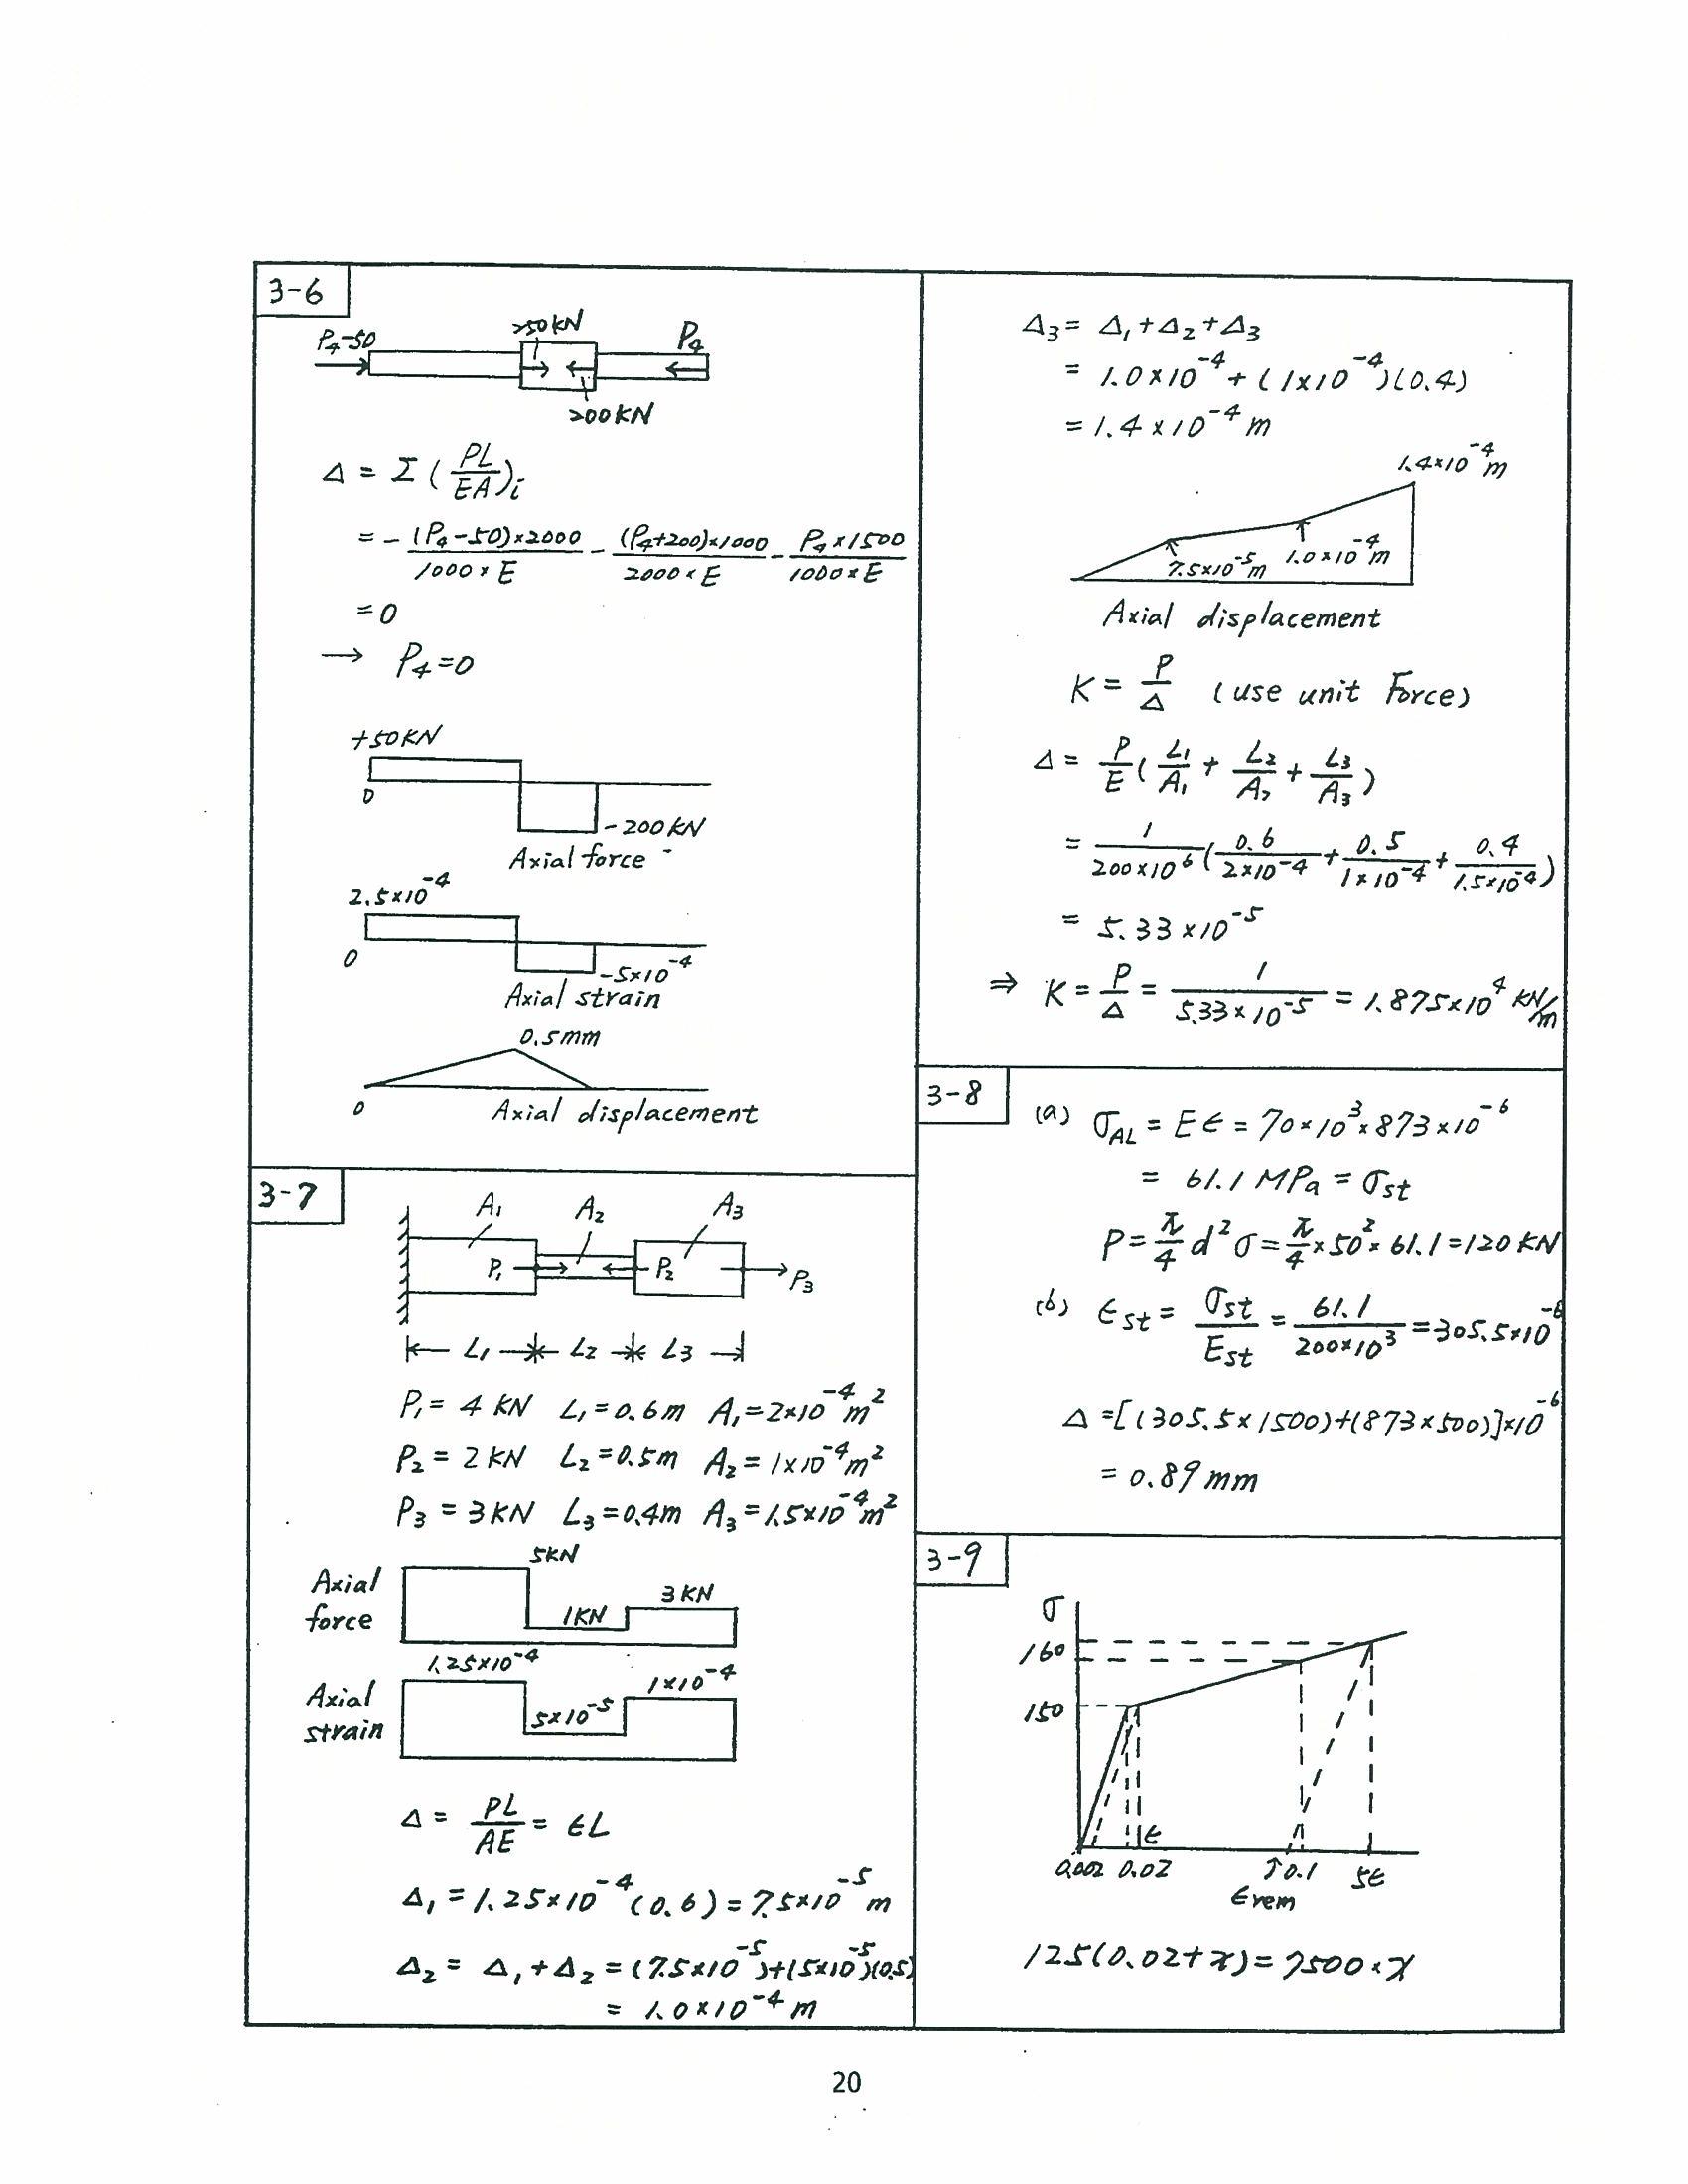 3-6
P₄-50
250KN
P₄
200KN
Δ = Σ (PL/EA)i
= - (P₄-50)×2000/1000×E - (P₄+200)×1000/2000×E - P₄×1500/1000×E
=0
→ P₄=0
+50KN
0
-200KN
Axial force
2.5×10⁻⁴
0
-5×10⁻⁴
Axial strain
0.5mm
0
Axial displacement
3-7
A₁ A₂ A₃
P₁ P₂ P₃
L₁ L₂ L₃
P₁= 4 KN L₁=0.6m A₁=2×10⁻⁴m²
P₂= 2KN L₂=0.5m A₂=1×10⁻⁴m²
P₃=3KN L₃=0.4m A₃=1.5×10⁻⁴m²
Axial force
5KN
1KN
3KN
Axial strain
1.25×10⁻⁴
5×10⁻⁵
1×10⁻⁴
Δ = PL/AE = εL
Δ₁=1.25×10⁻⁴(0.6)=7.5×10⁻⁵m
Δ₂= Δ₁+Δ₂=(7.5×10⁻⁵)+(5×10⁻⁵)(0.5)
= 1.0×10⁻⁴m
Δ₃= Δ₁+Δ₂+Δ₃
= 1.0×10⁻⁴+(1×10⁻⁴)(0.4)
=1.4×10⁻⁴m
1.4×10⁻⁴m
7.5×10⁻⁵m
1.0×10⁻⁴m
Axial displacement
K= P/Δ (use unit Force)
Δ= P/E(L₁/A₁+L₂/A₂+L₃/A₃)
= 1/200×10⁶(0.6/2×10⁻⁴+0.5/1×10⁻⁴+0.4/1.5×10⁻⁴)
= 5.33×10⁻⁵
⇒ K=P/Δ=1/5.33×10⁻⁵=1.875×10⁴ KN/m
3-8
(a) σAL=Eε=70×10³×873×10⁻⁶
= 61.1 MPa=σst
P=π/4 d²σ=π/4×50²×61.1=120KN
(b) εst=σst/Est=61.1/200×10³=305.5×10⁻⁶
Δ=[(305.5×1500)+(873×500)]×10⁻⁶
= 0.89mm
3-9
σ
160
150
ε
0.002 0.02 ↑0.1 5ε
εrem
125(0.02+x)=7500×x
20